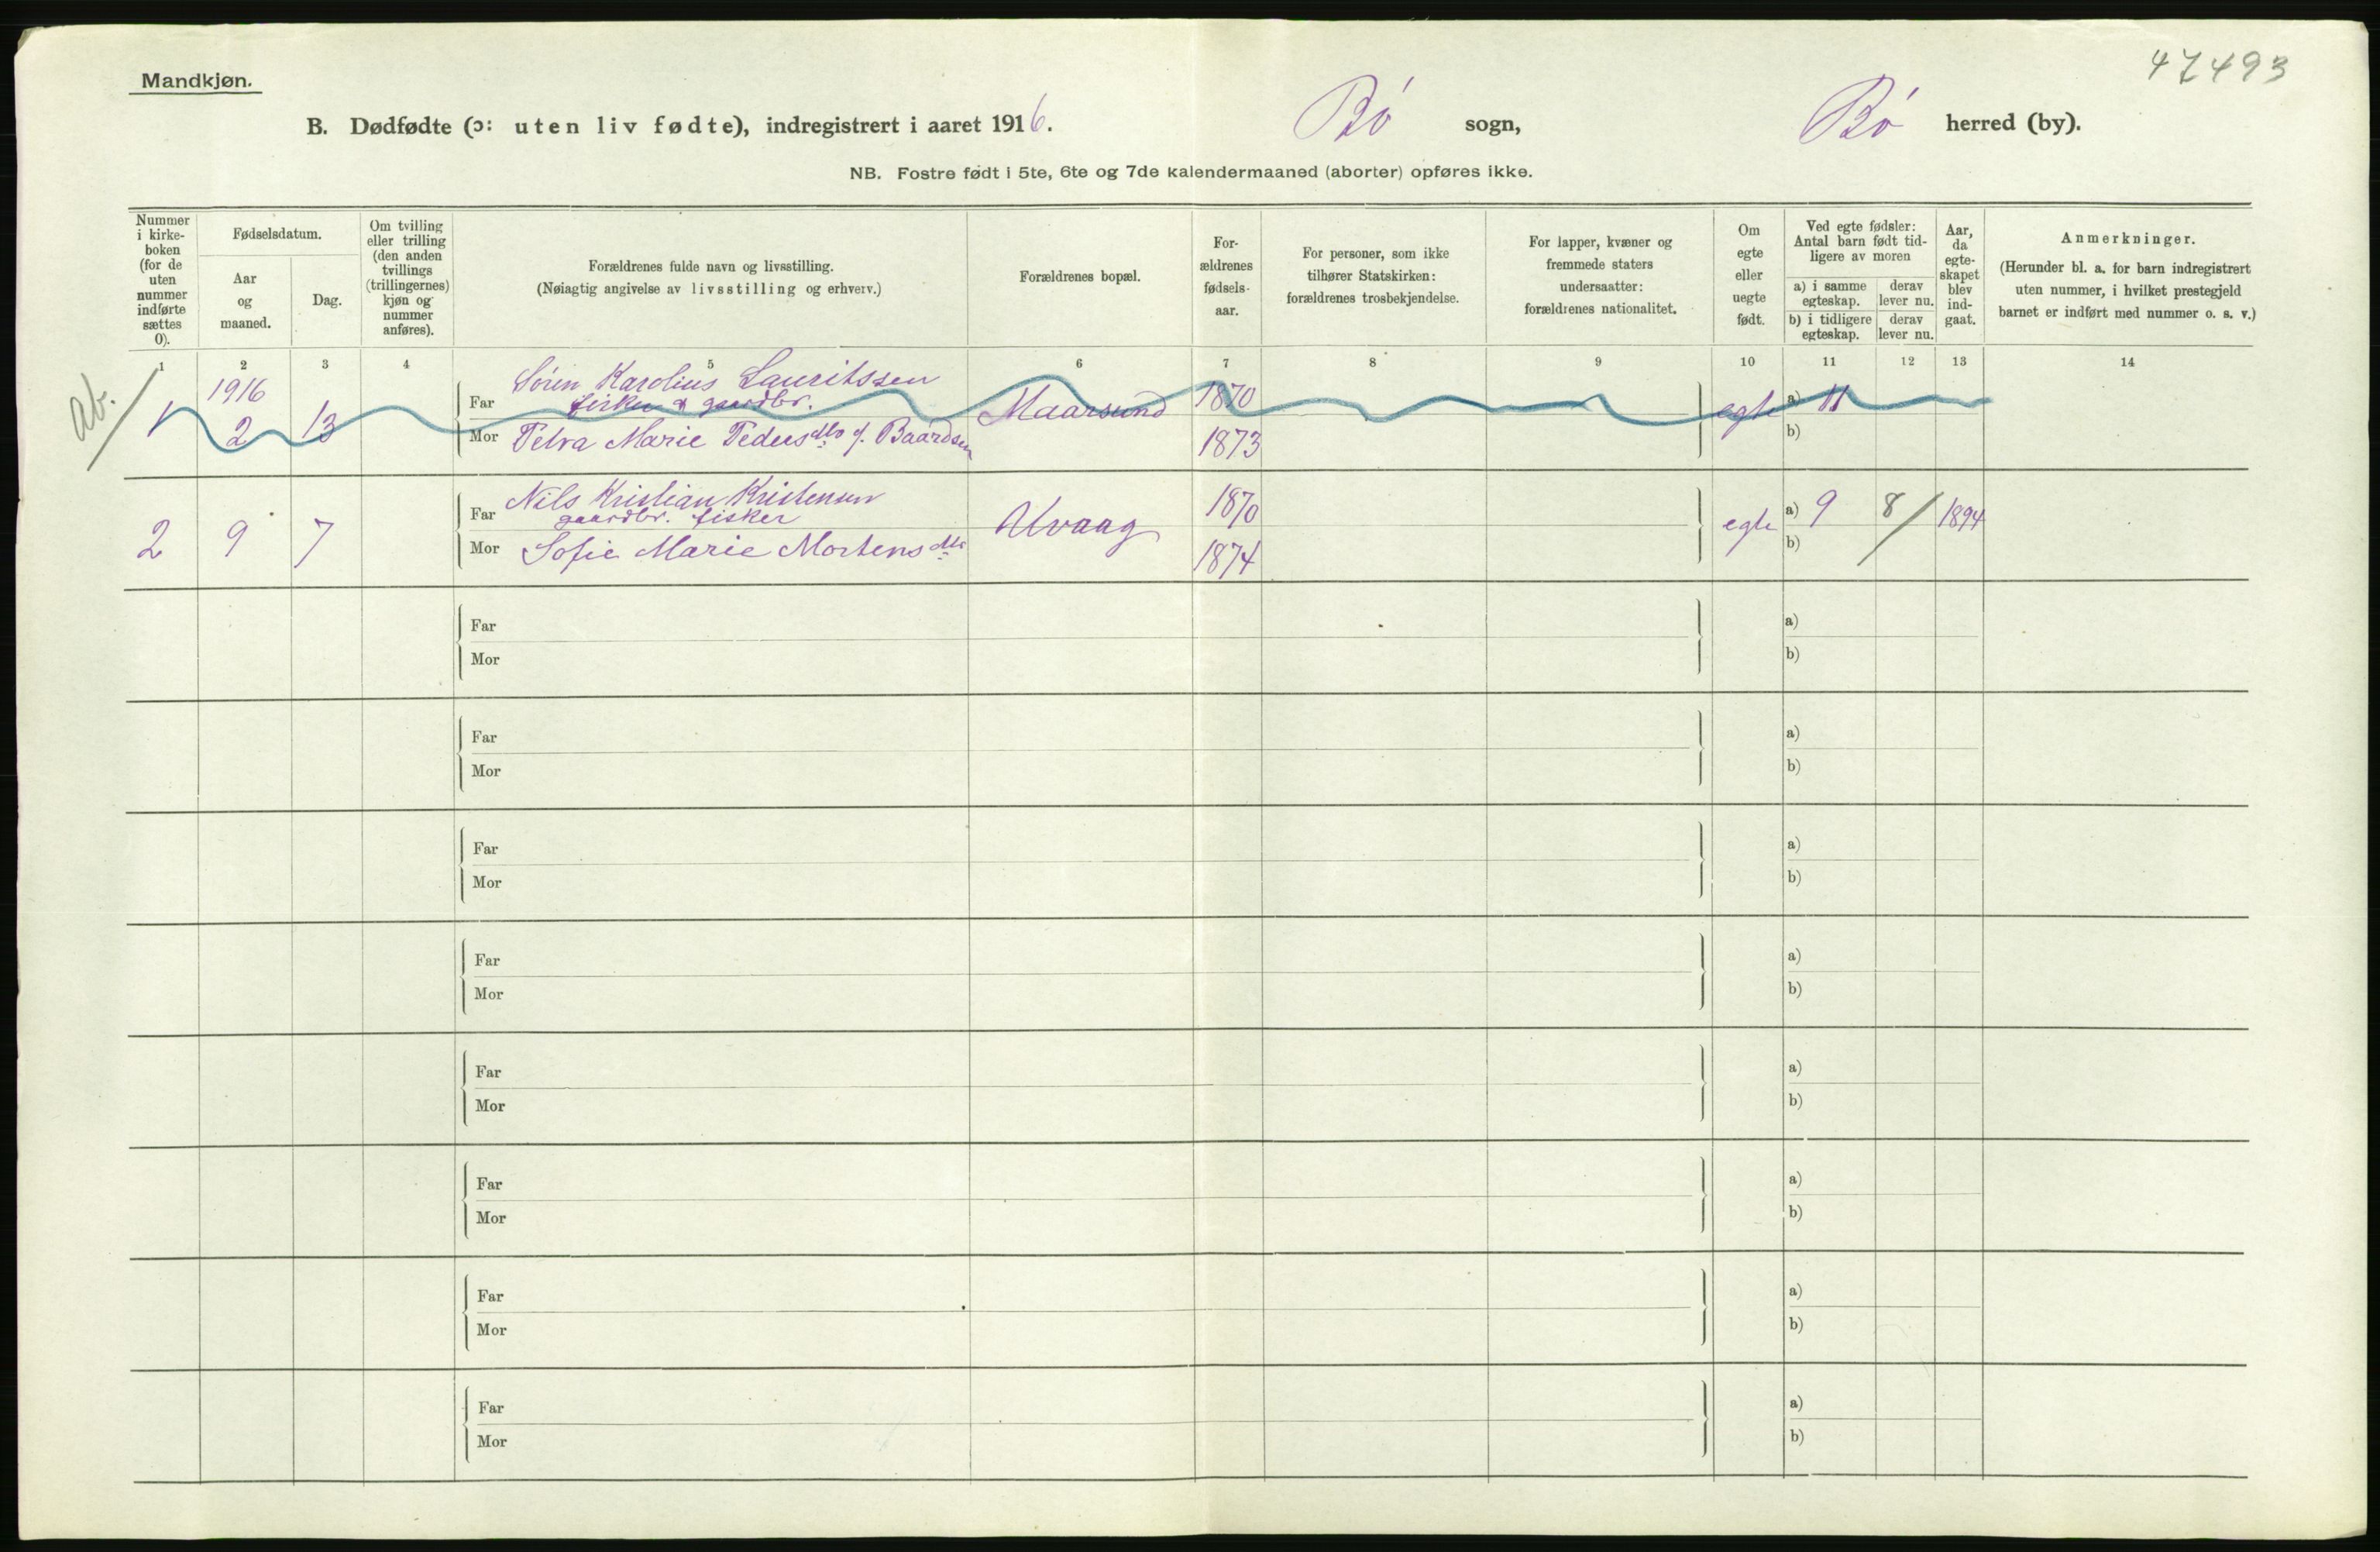 47493
Mandkjøn.
B. Dødfødte (ɔ: uten liv fødte), indregistrert i aaret 1916. Bø sogn, Bø herred (by).
NB. Fostre født i 5te, 6te og 7de kalendermaaned (aborter) opføres ikke.
Nummer i kirke-boken (for de uten nummer indførte sættes 0).
Fødselsdatum.
Aar og maaned.
Dag.
Om tvilling eller trilling (den anden tvillings (trillingernes) kjøn og nummer anføres).
Forældrenes fulde navn og livsstilling.
(Nøiagtig angivelse av livsstilling og erhverv.)
Forældrenes bopæl.
For-ældrenes fødsels-aar.
For personer, som ikke tilhører Statskirken: forældrenes trosbekjendelse.
For lapper, kvæner og fremmede staters undersaatter: forældrenes nationalitet.
Om egte eller uegte født.
Ved egte fødsler: Antal barn født tid-ligere av moren
a) i samme egteskap. derav lever nu.
b) i tidligere egteskap. derav lever nu.
Aar, da egte-skapet blev ind-gaat.
Anmerkninger.
(Herunder bl. a. for barn indregistrert uten nummer, i hvilket prestegjeld barnet er indført med nummer o. s. v.)
1 2 3 4 5 6 7 8 9 10 11 12 13 14
Ab.
1916
Søren Karolius Lauritssen
1 2 13 Far fisker & gaardbr. Maarsund 1870 egte a) 11
Mor Petra Marie Pedersdtr f. Baardsen 1873 b)
Nils Kristian Kristensen
2 9 7 Far gaardbr. fisker Uvaag 1870 egte a) 9 8 / 1894
Mor Sofie Marie Mortensdtr 1874 b)
Far a)
Mor b)
Far a)
Mor b)
Far a)
Mor b)
Far a)
Mor b)
Far a)
Mor b)
Far a)
Mor b)
Far a)
Mor b)
Far a)
Mor b)